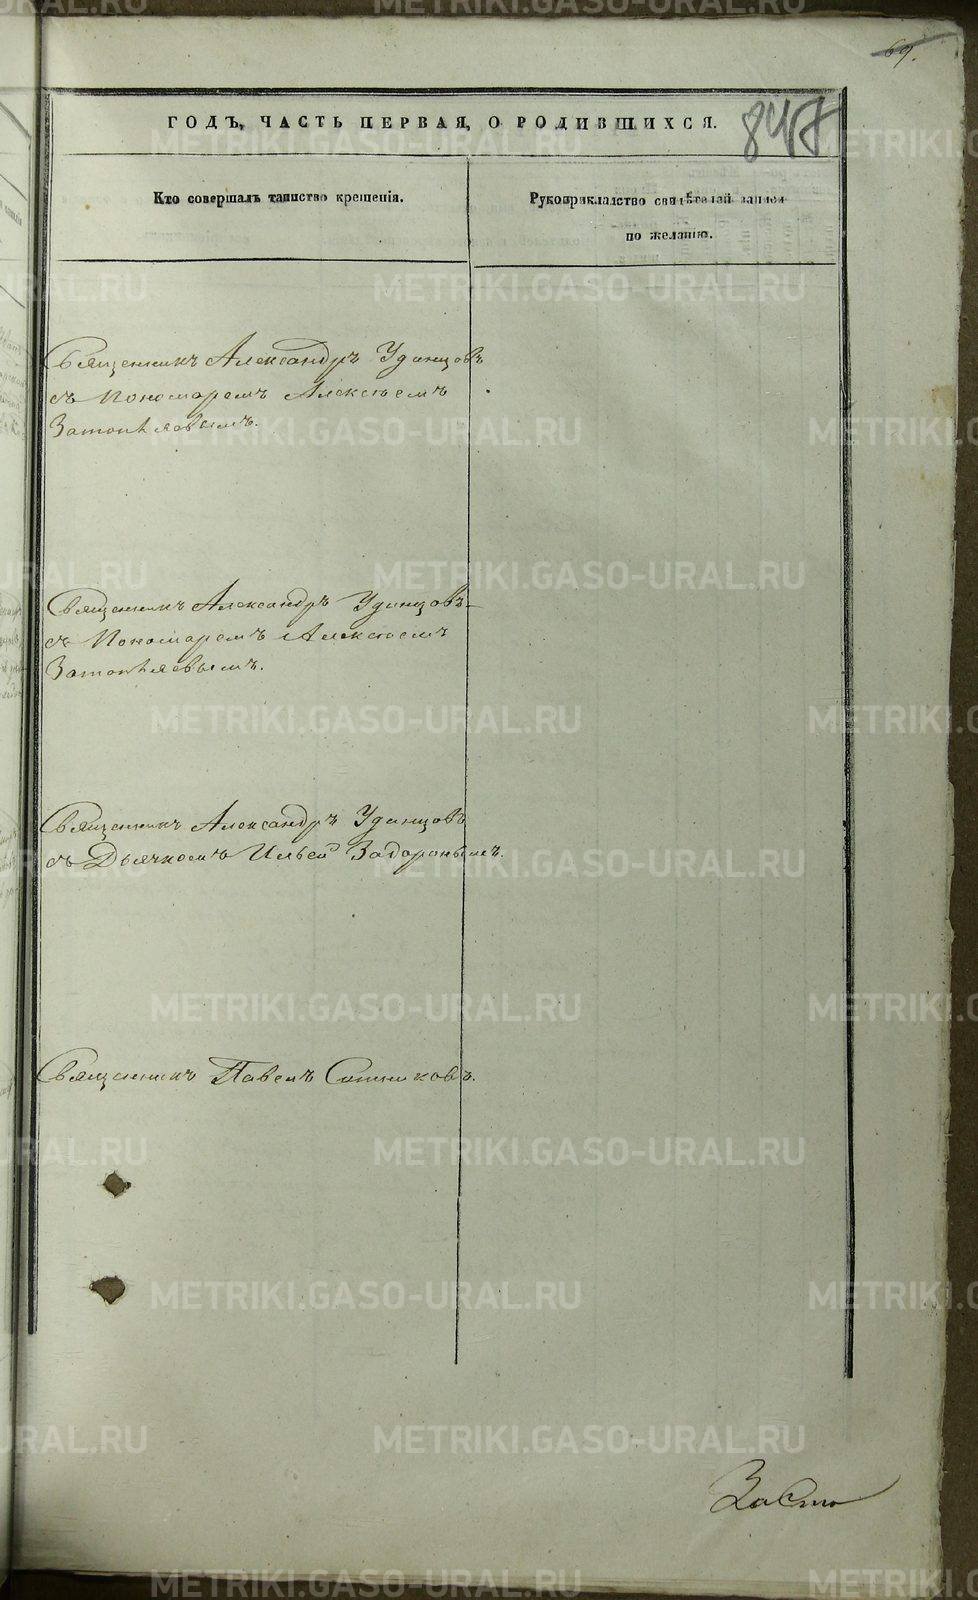 69.
847
ГОДЪ, ЧАСТЬ ПЕРВАЯ, О РОДИВШИХСЯ.
Кто совершалъ таинство крещенія.
Рукоприкладство свидѣтелей записи
по желанію.
Священникъ Александръ Удинцовъ
съ Пономаремъ Алексѣемъ
Затопляевымъ.
Священникъ Александръ Удинцовъ
съ Пономаремъ Алексѣемъ
Затопляевымъ.
Священникъ Александръ Удинцовъ
съ Дьячкомъ Ильей Задоронымъ.
Священникъ Павелъ Сотниковъ.
METRIKI.GASO-URAL.RU